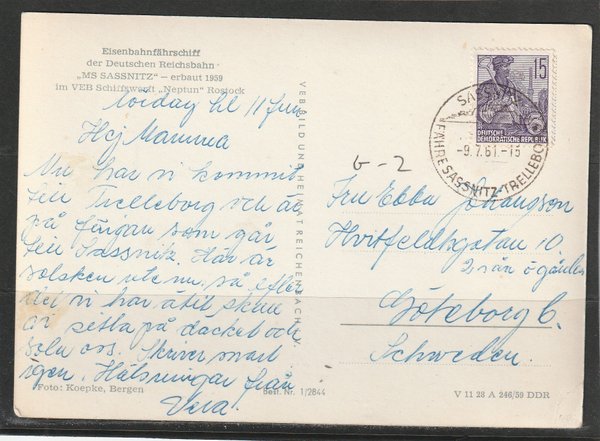 Eisenbahnfährschiff
der Deutschen Reichsbahn
„MS SASSNITZ" — erbaut 1959
im VEB Schiffswerft „Neptun" Rostock
kl 11
Hej Mamma
Nu har vi kommit
till Trelleborg och är
på färjan som går
till Sassnitz. Här är
solsken ute nu, så efter
det vi har ätit skall
vi sitta på däcket och
sola oss. Skriver snart
igen. Hälsningar från
Vera.
Foto: Koepke, Bergen
Best. Nr. 1/2844
VEB BILD UND HEIMAT REICHENBACH i. V.
15
DEUTSCHE
DEMOKRATISCHE REPUBLIK
SASSNITZ
-9.7.61.-15
FÄHRE SASSNITZ-TRELLEBORG
G-2
Fru Ebba Johansson
Hvitfeldtsgatan 10.
Göteborg C.
Schweden.
V 11 28 A 246/59 DDR